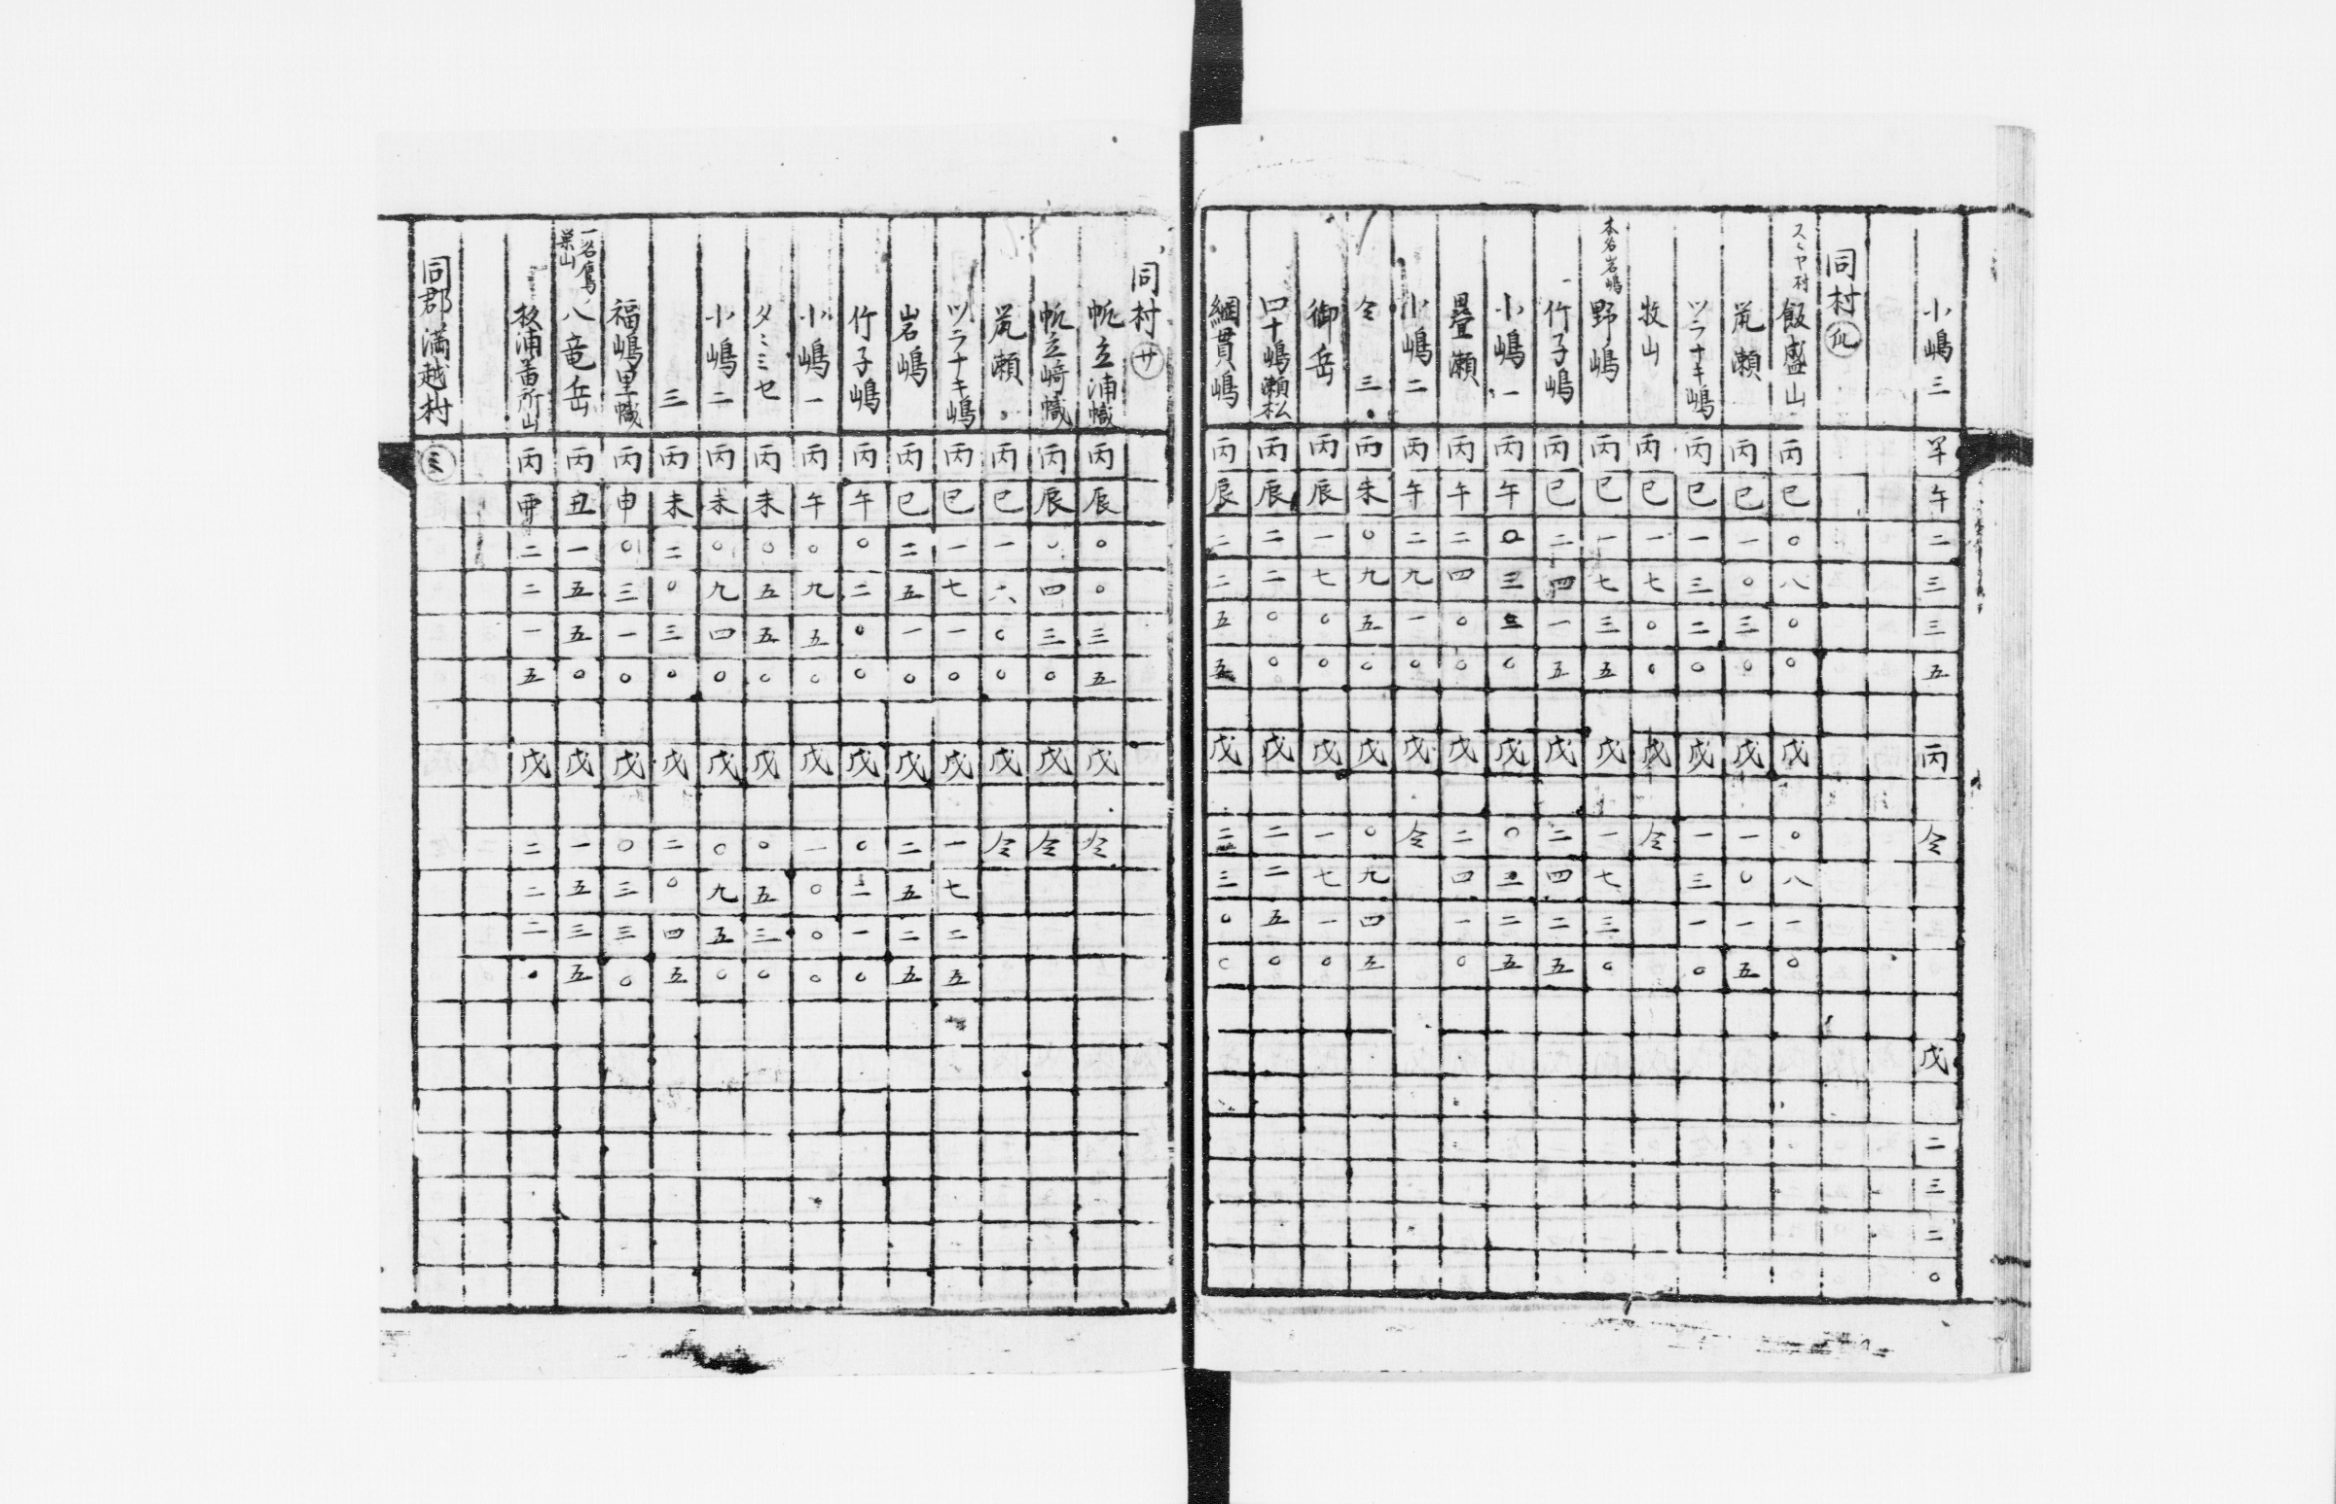 小嶋三 午 午 二 三 三 五 丙 仝 戊 二 三 二 〇
同村
スミヤ村 飯盛山 丙 巳 〇 八 〇 〇 戊 〇 八 一 〇
瀬 丙 巳 一 〇 三 〇 戊 一 〇 一 五
ツラナキ嶋 丙 巳 一 三 二 〇 戊 一 三 一 〇
牧山 丙 巳 一 七 〇 〇 戊 仝
本名岩嶋 野嶋 丙 巳 一 七 三 五 戊 一 七 三 〇
竹子嶋 丙 巳 二 四 一 五 戊 二 四 二 五
小嶋一 丙 午 〇 三 三 〇 戊 〇 三 二 五
疊瀬 丙 午 二 四 〇 〇 戊 二 四 一 〇
小嶋二 丙 午 二 九 一 〇 戊 仝
仝三 丙 未 〇 九 五 〇 戊 〇 九 四 五
御岳 丙 辰 一 七 〇 〇 戊 一 七 一 〇
四十嶋瀬松 丙 辰 二 二 〇 〇 戊 二 二 五 〇
綱貫嶋 丙 辰 二 二 五 五 戊 二 三 〇 〇
同村 廿
帆立浦幟 丙 辰 〇 〇 三 五 戊 仝
帆立崎幟 丙 辰 〇 四 三 〇 戊 仝
瀬 丙 巳 一 六 〇 〇 戊 仝
ツラナキ嶋 丙 巳 一 七 一 〇 戊 一 七 二 五
岩嶋 丙 巳 二 五 一 〇 戊 二 五 二 五
竹子嶋 丙 午 〇 二 〇 〇 戊 〇 二 一 〇
小嶋一 丙 午 〇 九 五 〇 戊 一 〇 〇 〇
タミミセ 丙 未 〇 五 五 〇 戊 〇 五 三 〇
小嶋二 丙 未 〇 九 四 〇 戊 〇 九 五 〇
三 丙 未 二 〇 三 〇 戊 二 〇 四 五
福嶋里幟 丙 申 〇 三 一 〇 戊 〇 三 三 〇
一名鷹ノ巣山 八竜岳 丙 丑 一 五 五 〇 戊 一 五 三 五
浦番所山 丙 酉 二 二 一 五 戊 二 二 二 〇
同郡満越村